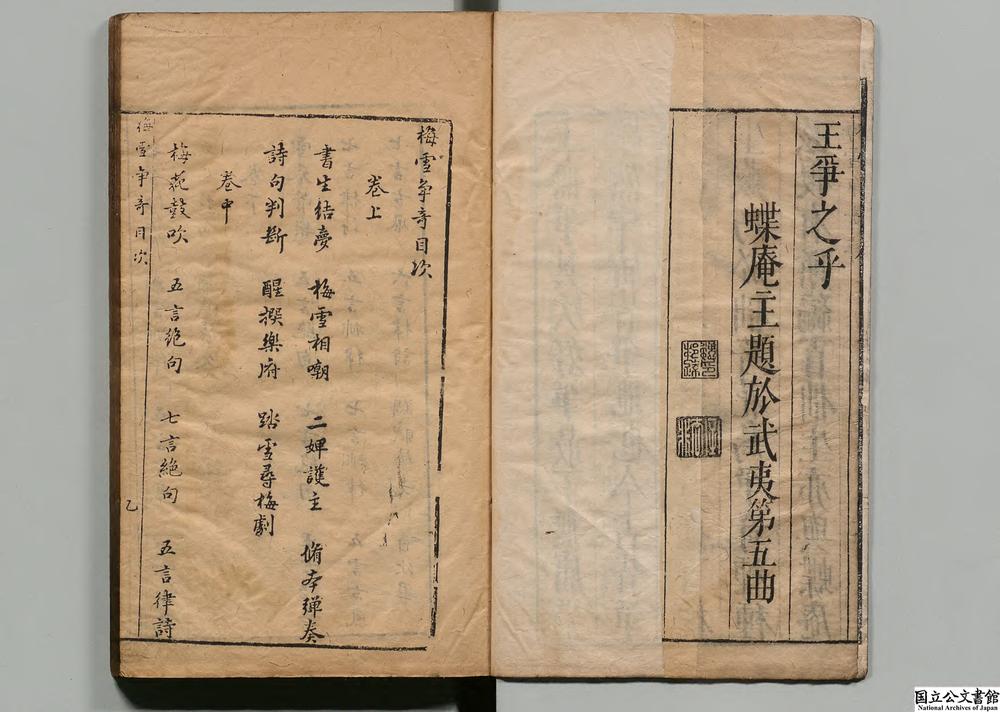 王爭之乎
蝶庵主題於武夷第五曲
梅雪爭奇目次
卷上
書生結夢 梅雪相嘲 二婢護主 脩本彈奏
詩句判斷 醒撰樂府 踏雪尋梅劇
卷中
梅花鼓吹 五言絕句 七言絕句 五言律詩
梅雪爭奇目次 乙
国立公文書館
National Archives of Japan